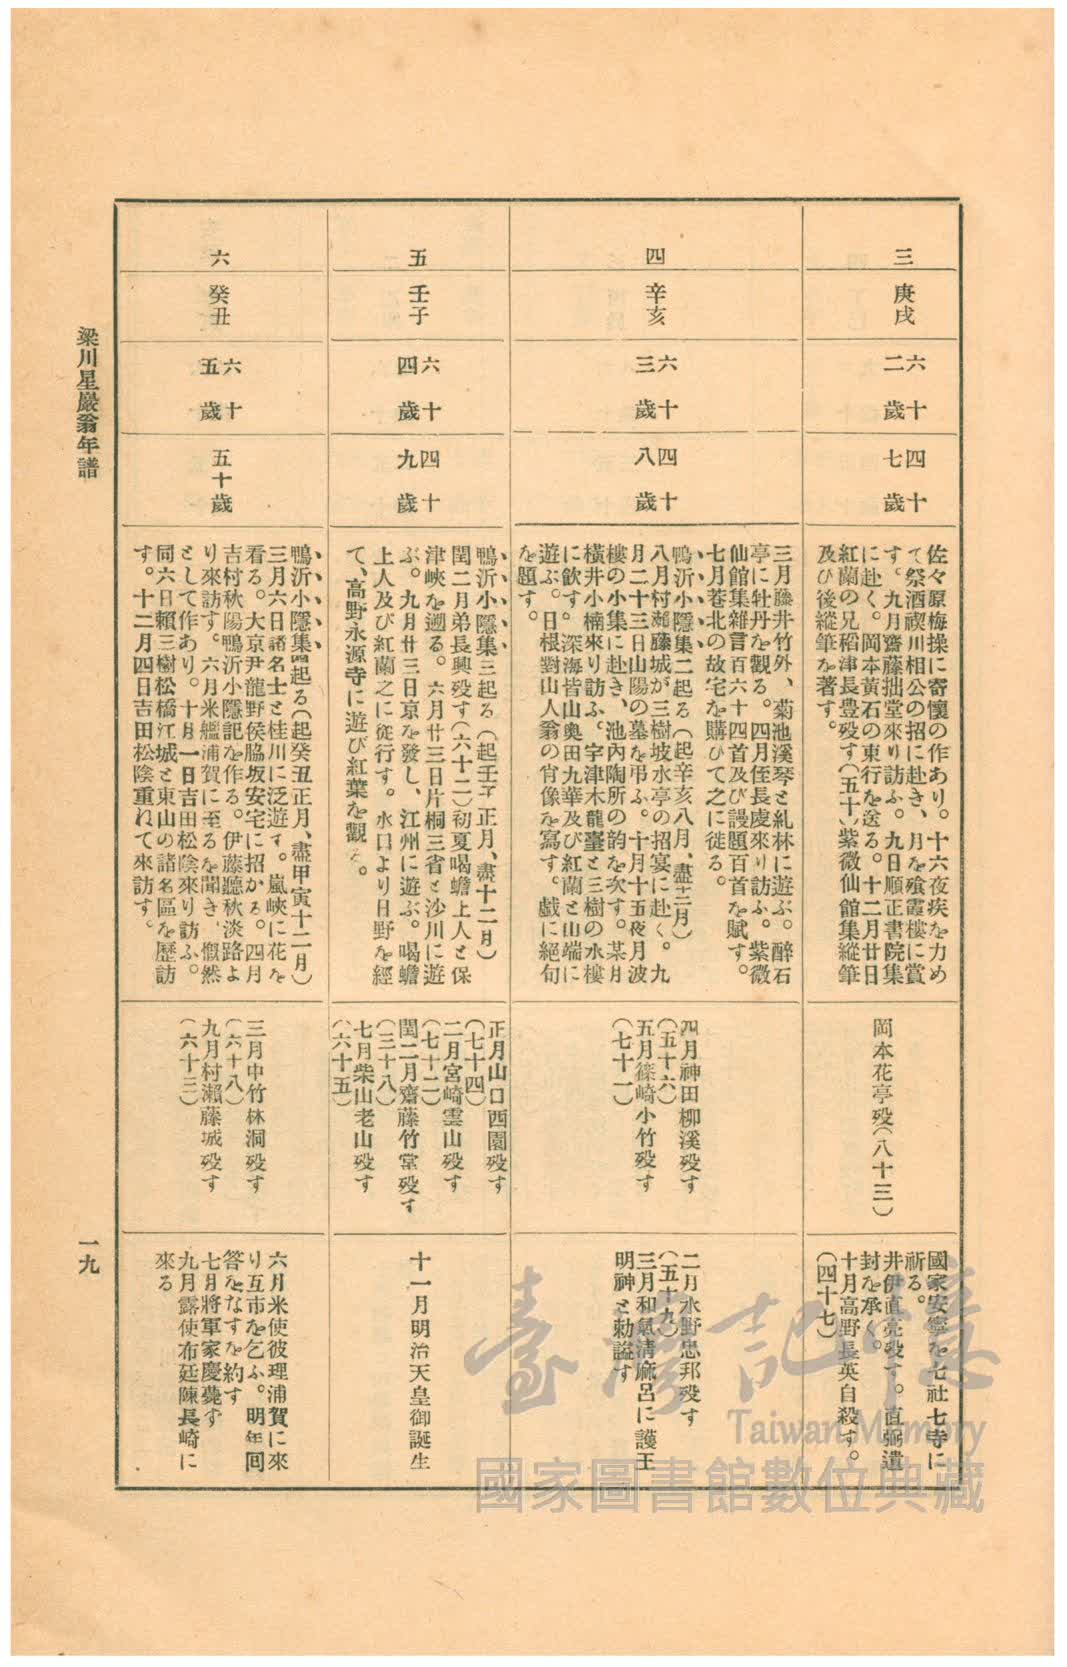 三
庚戌
六十二歲
四十七歲
佐々原梅操に寄懷の作あり。十六夜疾を力め
て祭酒禊川相公の招に赴き、月を飧霞樓に賞
す。九月齋藤拙堂來り訪ふ。九日順正書院集
に赴く。岡本黃石の東行を送る。十二月廿日
紅蘭の兄稻津長豊歿す(五十)、紫微仙館集縱筆
及び後縱筆を著す。
岡本花亭歿(八十三)
國家安寧を七社七寺に
祈る。
井伊直亮歿す。直弼遺
封を承く。
十月高野長英自殺す。
(四十七)
四
辛亥
六十三歲
四十八歲
三月藤井竹外、菊池溪琴と糺林に遊ぶ。醉石
亭に牡丹を觀る。四月侄長虔來り訪ふ。紫微
仙館集雜言百六十四首及び謾題百首を賦す。
七月巷北の故宅を購ひて之に徙る。
鴨沂小隱集二起る(起辛亥八月、盡十二月)
八月村瀨藤城が三樹坡水亭の招宴に赴く。九
月二十三日山陽の墓を弔ふ。十月十五夜月波
樓の小集に赴き、池內陶所の韵を次す。某月
橫井小楠來り訪ふ。宇津木龍臺と三樹の水樓
に飮す。深海皆山奧田九華及び紅蘭と山端に
遊ぶ。日根對山人翁の肖像を寫す。戲に絕句
を題す。
四月神田柳溪歿す
(五十六)
五月篠崎小竹歿す
(七十一)
二月水野忠邦歿す
(五十九)
三月和氣淸麻呂に護王
明神と勅諡す
五
壬子
六十四歲
四十九歲
鴨沂小隱集三起る(起壬子正月、盡十二月)
閏二月弟長興歿す(六十二)初夏喝蟾上人と保
津峽を遡る。六月廿三日片桐三省と沙川に遊
ぶ。九月廿三日京を發し、江州に遊ぶ。喝蟾
上人及び紅蘭之に從行す。水口より日野を經
て、高野永源寺に遊び紅葉を觀る。
正月山口西園歿す
(七十四)
二月宮崎雲山歿す
(七十二)
閏二月齋藤竹堂歿す
(三十八)
七月柴山老山歿す
(六十五)
十一月明治天皇御誕生
六
癸丑
六十五歲
五十歲
鴨沂小隱集四起る(起癸丑正月、盡甲寅十二月)
三月六日諸名士と桂川に泛遊す。嵐峽に花を
看る。大京尹龍野侯脇坂安宅に招かる。四月
吉村秋陽鴨沂小隱記を作る。伊藤聽秋淡路よ
り來訪す。六月米艦浦賀に至るを聞き、慨然
として作あり。十月一日吉田松陰來り訪ふ。
同六日賴三樹松橋江城と東山の諸名區を歷訪
す。十二月四日吉田松陰重ねて來訪す。
三月中竹林洞歿す
(六十八)
九月村瀨藤城歿す
(六十三)
六月米使彼理浦賀に來
り互市を乞ふ。明年囘
答をなすを約す
七月將軍家慶薨ず
九月露使布廷陳長崎に
來る
梁川星巖翁年譜
一九
臺灣記憶
Taiwan Memory
國家圖書館數位典藏